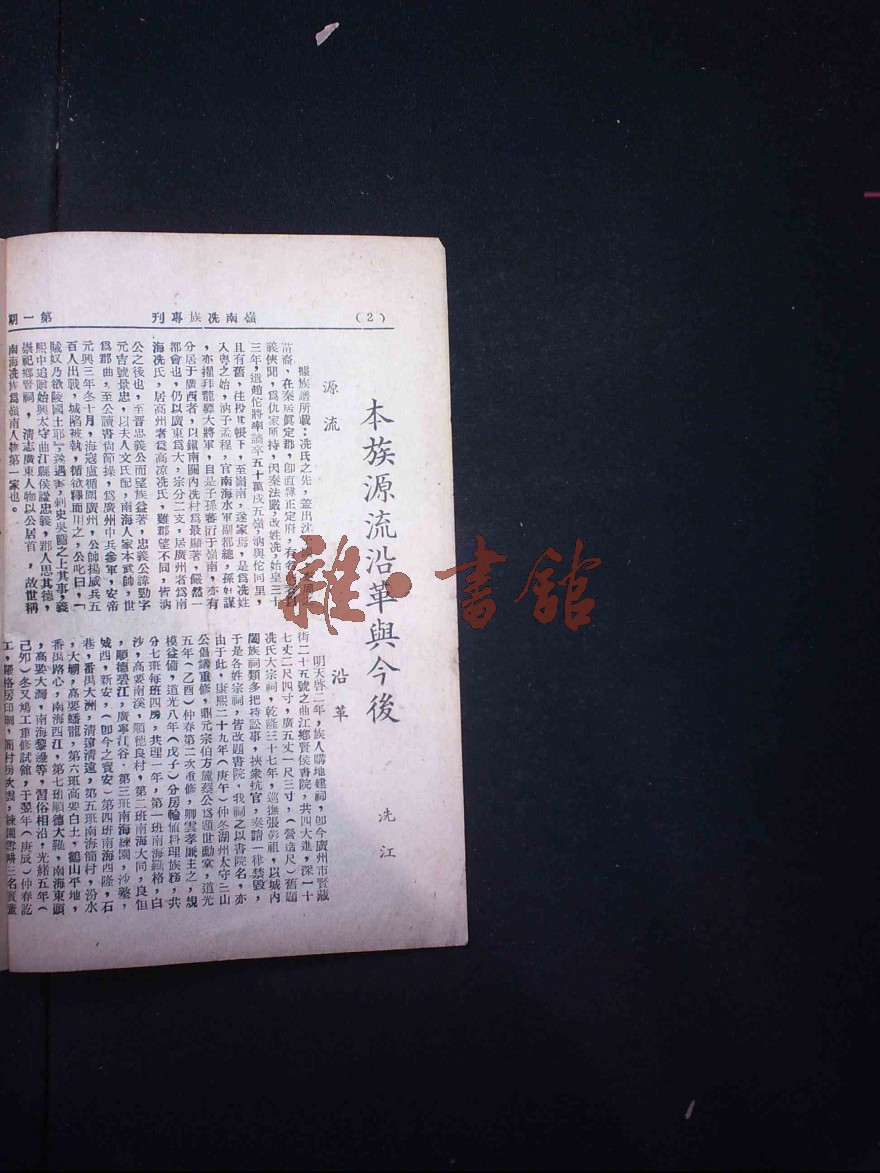 （２）
嶺南冼族專刊
第一期
本族源流沿革與今後
冼江
源流
據族譜所載：冼氏之先，蓋出沈
苗裔，在秦居眞定郡，卽直隸正定府，有名
義俠聞，爲仇家所持，因秦法嚴，改姓冼，始皇三十
三年，遣趙佗將率謫卒五十萬戍五嶺，汭與佗同里，
且有舊，往投其帳下，至嶺南，遂家焉，是爲冼姓
入粵之始，汭子孟程，官南海水軍副都總，孫好謀
，亦擢拜龍驤大將軍，自是子孫蕃衍于嶺南，亦有
分居于廣西者，以鎭南關內冼村爲最顯著，儼然一
都會也，仍以廣東爲大，宗分二支，居廣州者爲南
海冼氏，居高州者爲高凉冼氏，雖郡望不同，皆汭
公之後也，至晋忠義公而望族益著，忠義公諱勁字
元吉號景忠，以夫人文氏配，南海人家本武帥，世
爲郡曲，至公讀書尙節操，爲廣州中兵參軍，安帝
元興三年冬十月，海寇盧循圍廣州，公帥揚威兵五
百人出戰，城陷被執，循欲釋而用之，公叱曰，「
賊奴乃欲陵國士耶」，遂遇害，刺史吳隱之上其事，義
熙中追贈始興太守曲江縣侯謚忠義，郡人思其德，
崇祀鄉賢祠，清志廣東人物以公居首，故世稱
南海冼族爲嶺南人物第一家也。
沿革
明天啓二年，族人購地建祠，卽今廣州市賢藏
街二十五號之曲江鄉賢侯書院，共四大進，深一十
七丈二尺四寸，廣五丈一尺三寸，（營造尺）舊題
冼氏大宗祠，乾隆三十七年，巡撫張彭祖，以城內
闔族祠類多把持訟事，挾衆抗官，奏請一律禁毀，
于是各姓宗祠，皆改題書院，我祠之以書院名，亦
由于此，康熙二十九年（庚午）仲冬湖州太守三山
公倡議重修，鼎元宗伯方麓蔡公爲題世勳堂，道光
五年（乙酉）仲春第二次重修，卿雲孝廉主之，規
模益備，道光八年（戊子）分房輪值料理族務，共
分七班每班四房，共理一年，第一班南海鎮格，白
沙，高要南溪，順德良村，第二班南海大同，良恒
，順德碧江，廣寧江谷，第三班南海練園，沙㙟，
城西，新安，（卽今之寶安）第四班南海西隆，石
巷，番禺大洲，清遠清遠，第五班南海簡村，汾水
，大塱，高要蟠龍，第六班高要白土，鶴山平地，
番禺路心，南海西江，第七班順德大羅，南海東頭
，高要大灣，南海黎邊等，習俗相沿，光緒五年（
己卯）冬又鳩工重修試館，于翌年（庚辰）仲春訖
雜·書館